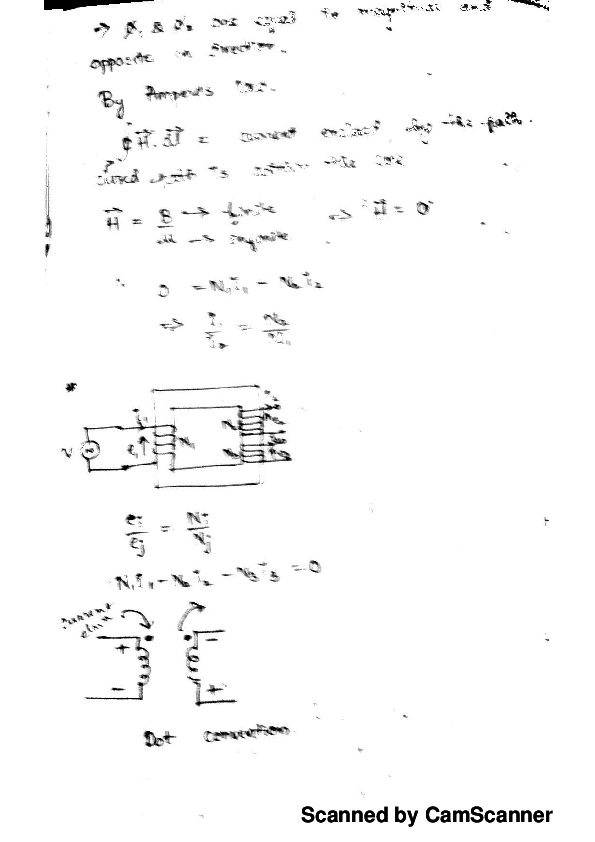 → Φ₁ & Φ₂ are equal in magnitude and
opposite in direction.
By Ampere's law.
∮ H⃗ . dl⃗ = current enclosed by the path.
closed path is within the core
H⃗ = B → finite / μ → infinite ⇒ H⃗ = 0
∴ 0 = N₁i₁ - N₂i₂
⇒ i₁/i₂ = N₂/N₁
*
i₁ i₂
V e₁ N₁ N₂
eᵢ/eⱼ = Nᵢ/Nⱼ
N₁i₁ - N₂i₂ - N₃i₃ = 0
current
+ -
- +
Dot convention
Scanned by CamScanner